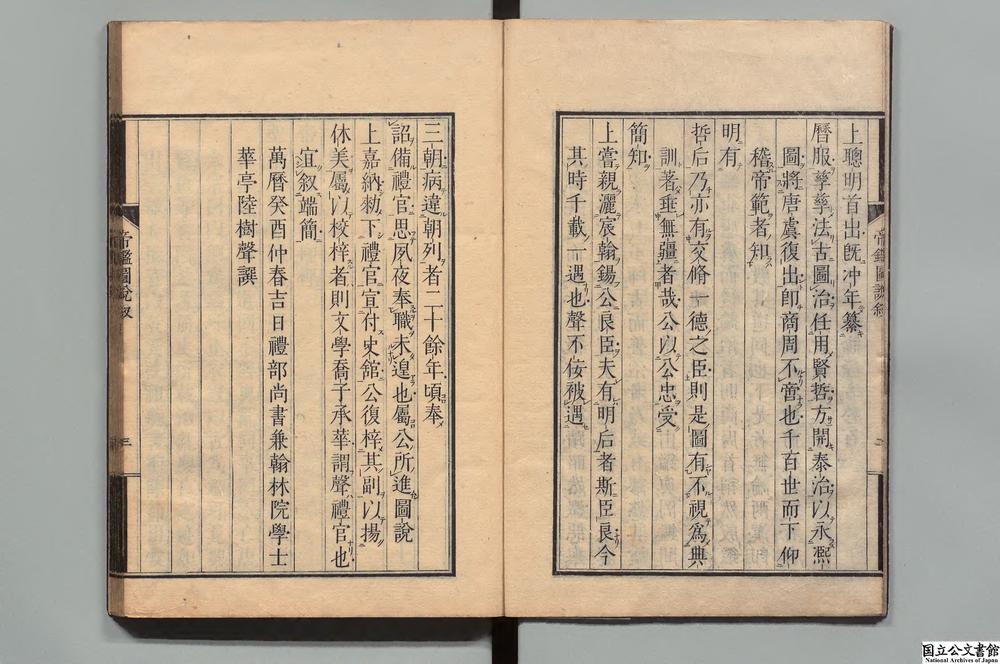 上聰明首出既冲年纂
曆服孳孳法古圖治任用賢哲方開泰治以永熙
圖將唐虞復出卽商周不啻也千百世而下仰
稽帝範者知
明有
哲后乃亦有交脩一德之臣則是圖有不視爲典
訓著垂無疆者哉公以公忠受
簡知
上嘗親灑宸翰錫公良臣夫有明后者斯臣良今
其時千載一遇也聲不侫被遇
帝鑑圖說叙
二
三朝病違朝列者二十餘年頃奉
詔備禮官思夙夜奉職未遑也屬公所進圖說
上嘉納勑下禮官宣付史舘公復梓其副以揚
休美屬以校梓者則文學喬子承華謂聲禮官也
宜叙端簡
萬曆癸酉仲春吉日禮部尚書兼翰林院學士
華亭陸樹聲譔
帝鑑圖說叙
三
国立公文書館
National Archives of Japan